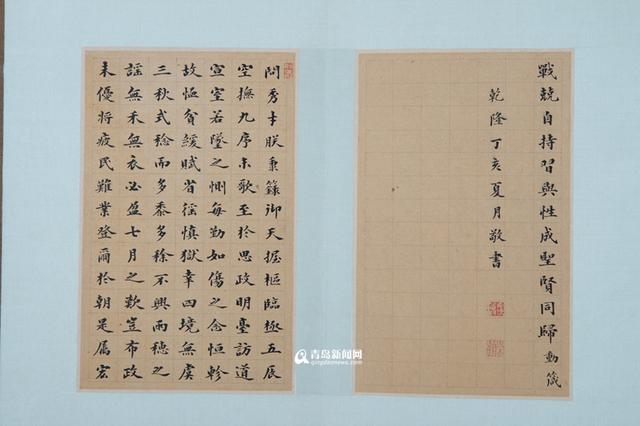 戰兢自持習與性成聖賢同歸動箴
乾隆丁亥夏月敬書
問秀才朕秉籙御天握樞臨極五辰
空撫九序未歌至於思政明臺訪道
宣室若墜之惻每勤如傷之念恒軫
故恤貧緩賦省徭慎獄幸四境無虞
三秋式稔而多黍多稌不興兩穗之
謠無禾無衣必盈七月之歎豈布政
未優將疲民難業登爾於朝是属宏
青岛新闻网
qingdaonews.com